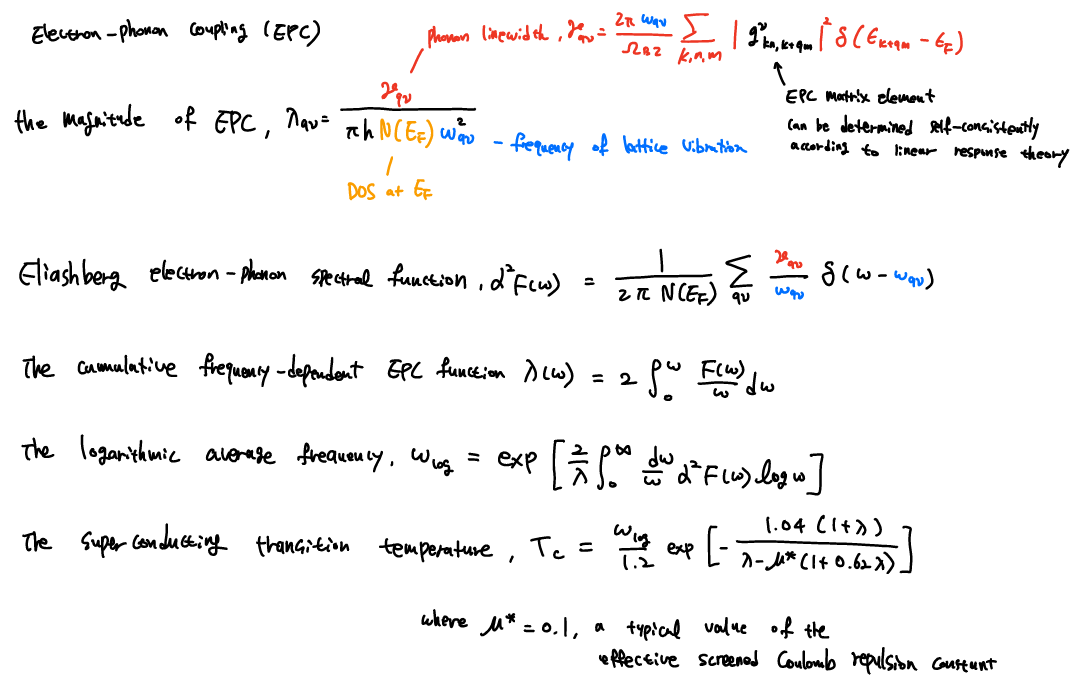 Electron-phonon coupling (EPC)
phonon linewidth, γ_qν = 2π ω_qν / Ω_BZ ∑_k,n,m | g^ν_kn,k+qm |² δ(ε_k+qm − ε_F)
EPC matrix element
can be determined self-consistently
according to linear response theory
the magnitude of EPC, λ_qν = γ_qν / πh N(E_F) ω²_qν - frequency of lattice vibration
DOS at E_F
Eliashberg electron-phonon spectral function, α²F(ω) = 1 / 2π N(E_F) ∑_qν γ_qν / ω_qν δ(ω − ω_qν)
The cumulative frequency-dependent EPC function λ(ω) = 2 ∫_0^ω F(ω)/ω dω
The logarithmic average frequency, ω_log = exp [ 2/λ ∫_0^∞ dω/ω α²F(ω) log ω ]
The superconducting transition temperature, T_c = ω_log / 1.2 exp [ − 1.04 (1+λ) / λ − μ* (1+0.62λ) ]
where μ* = 0.1, a typical value of the
effective screened Coulomb repulsion constant